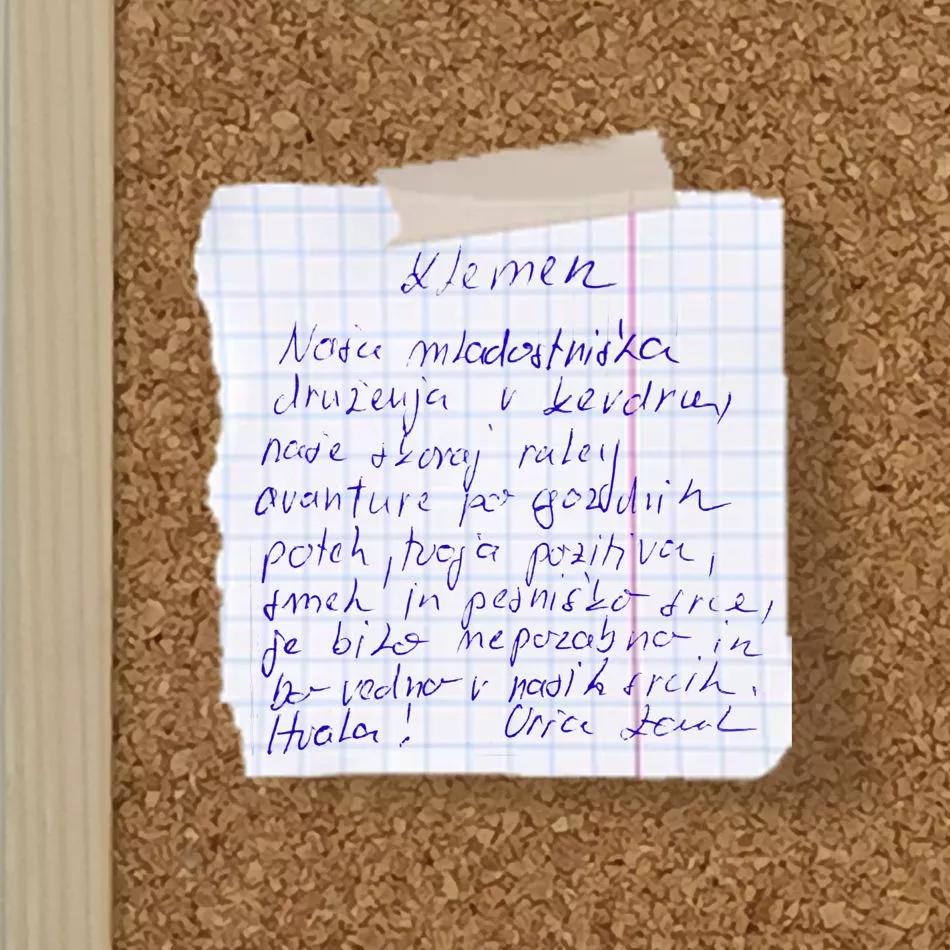 Klemen
Naša mladostniška
druženja v kevdru,
naše skoraj raley
avanture po gozdnih
poteh, tvoja pozitiva,
smeh in pesniško srce,
je bilo nepozabno in
bo vedno v naših srcih.
Hvala!